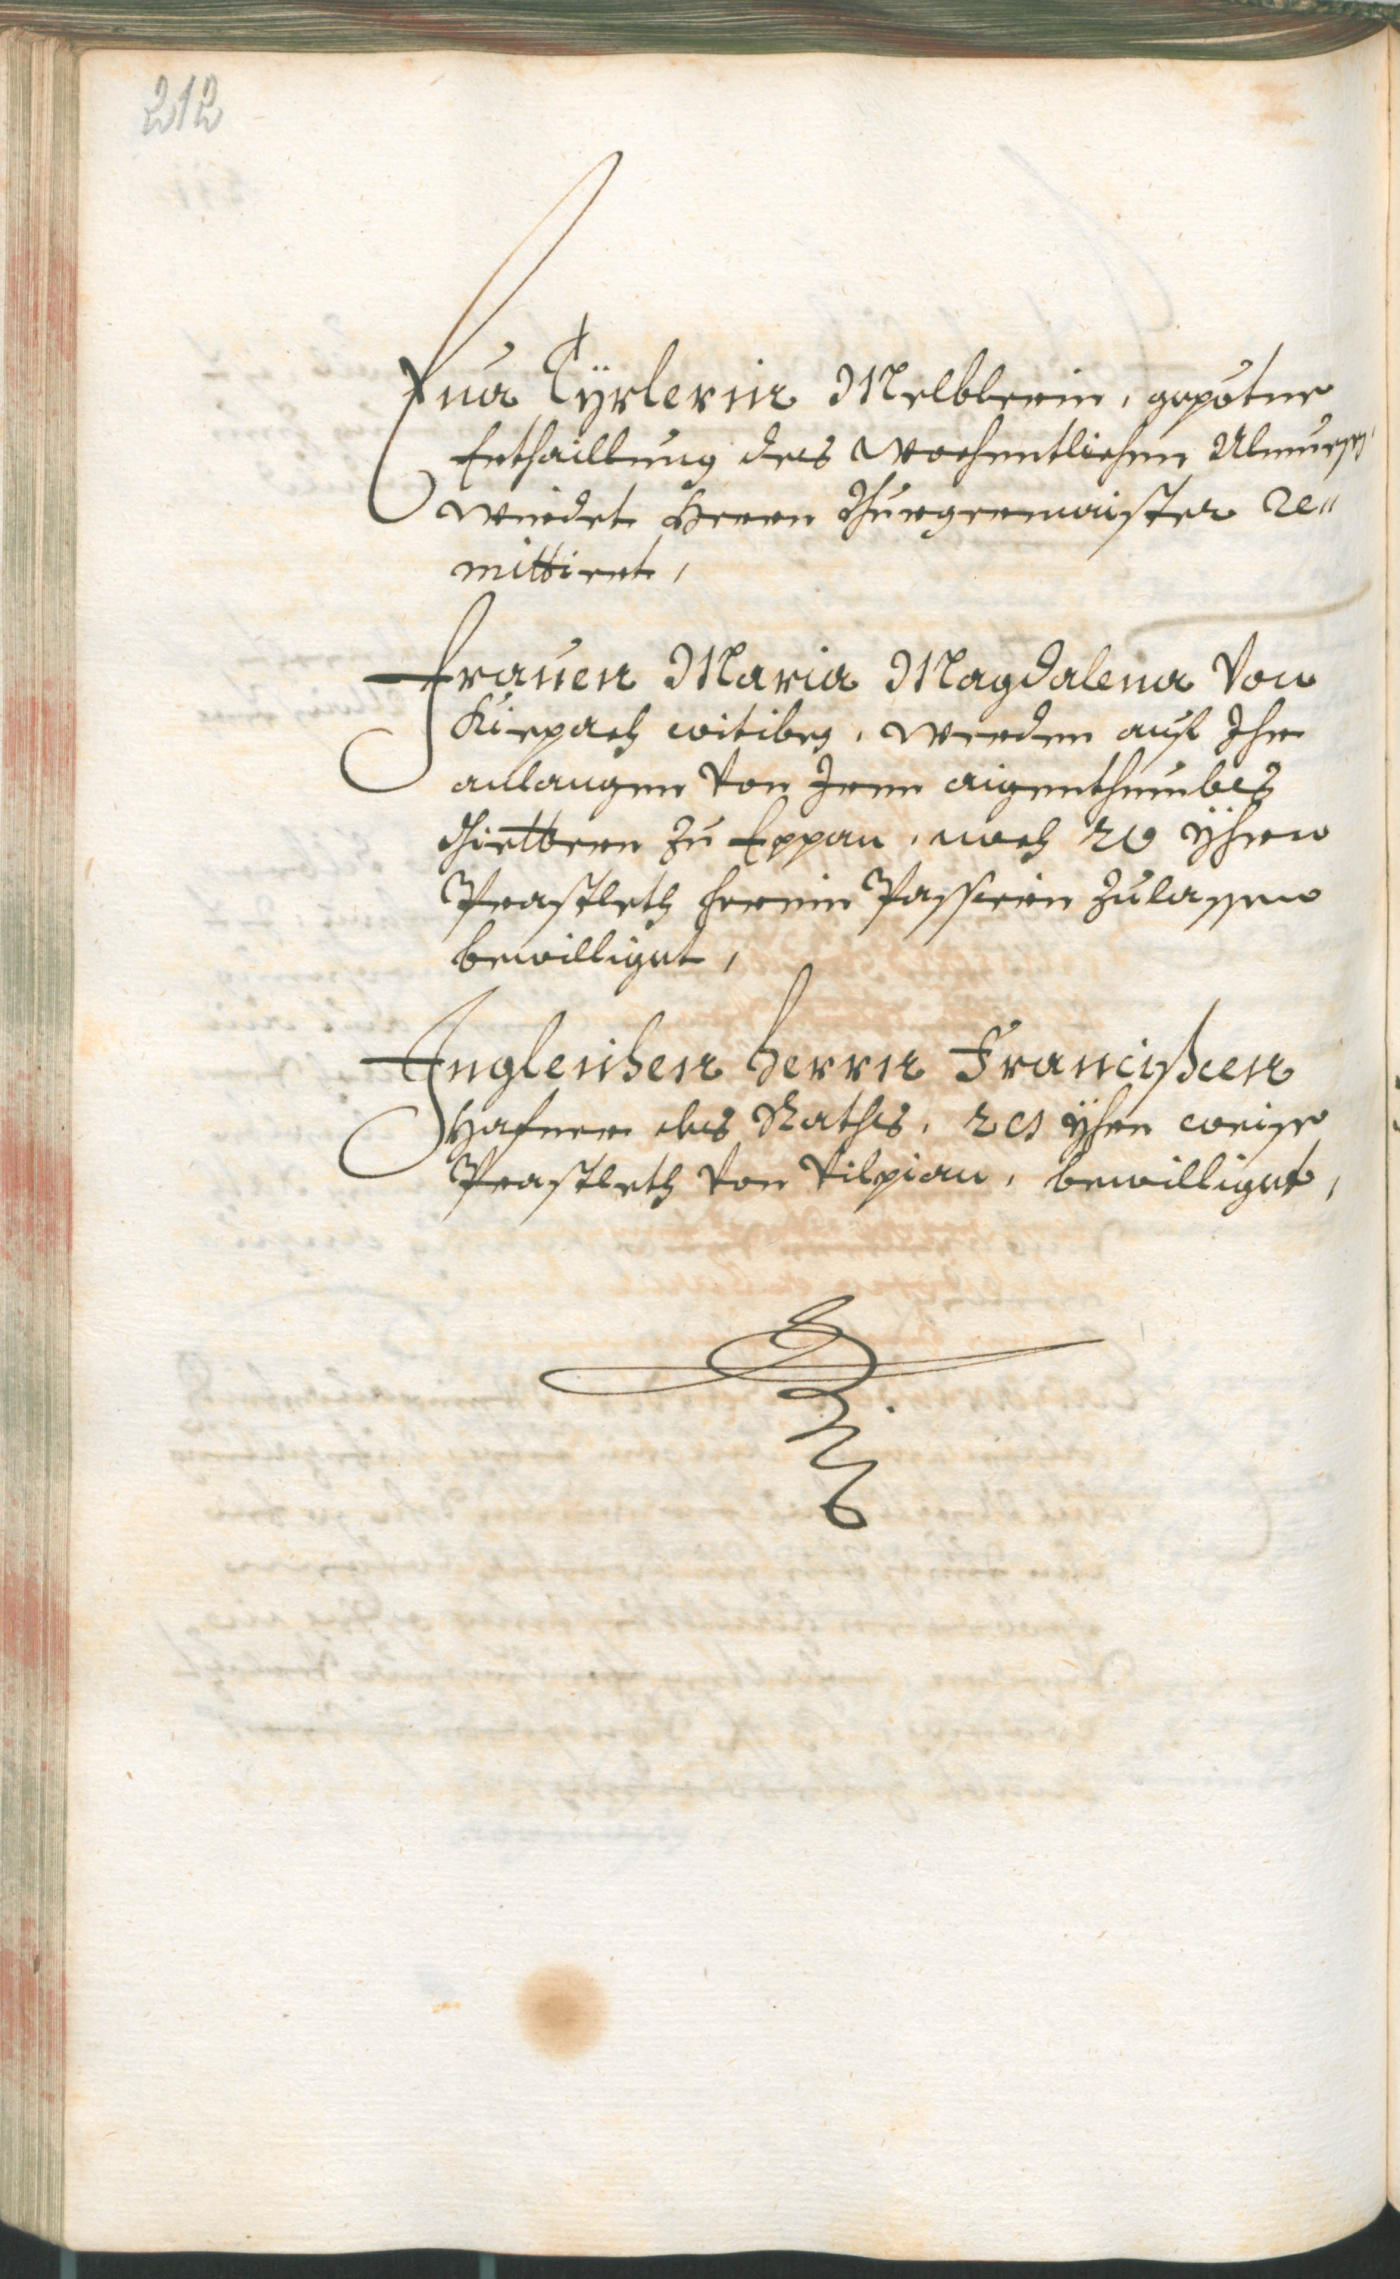 212
Anna Tÿrlerin Melblerin, gepetne
Erthaillung des wochentlichen Almueß,
wirdet Herrn Burgermaister re//
mittiert,
Frauen Maria Magdalena von
Kürpach witibeg, werden auf Ihr
anlangen von Iren aigenthumbes
Güettern zu Eppan, noch 20 Yhrn
Praßleth herein Passiern zulassen
bewilliget,
Ingleichen Herrn Francißcen
Hafner des Raths, Yhrn weiss
Praßleth von Vilpian, bewilliget,